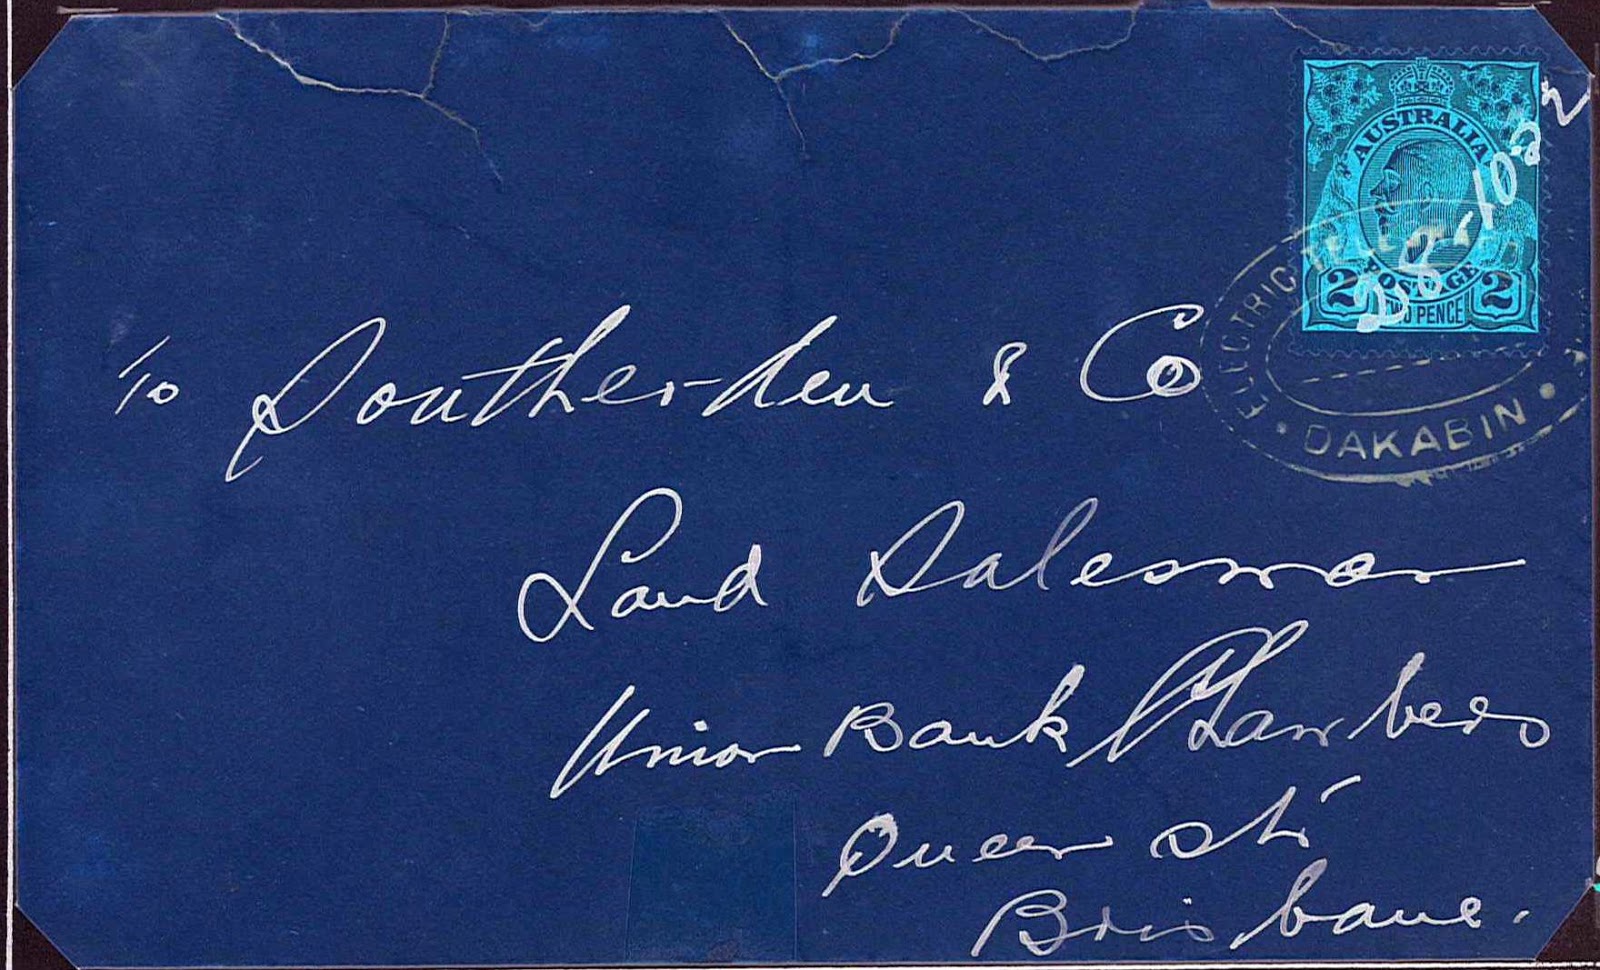 AUSTRALIA
POSTAGE
2 TWO PENCE 2
28-10-22
ELECTRIC TELEGRAPH
DAKABIN
To Southerden & Co
Land Salesman
Union Bank Chambers
Queen St
Brisbane.